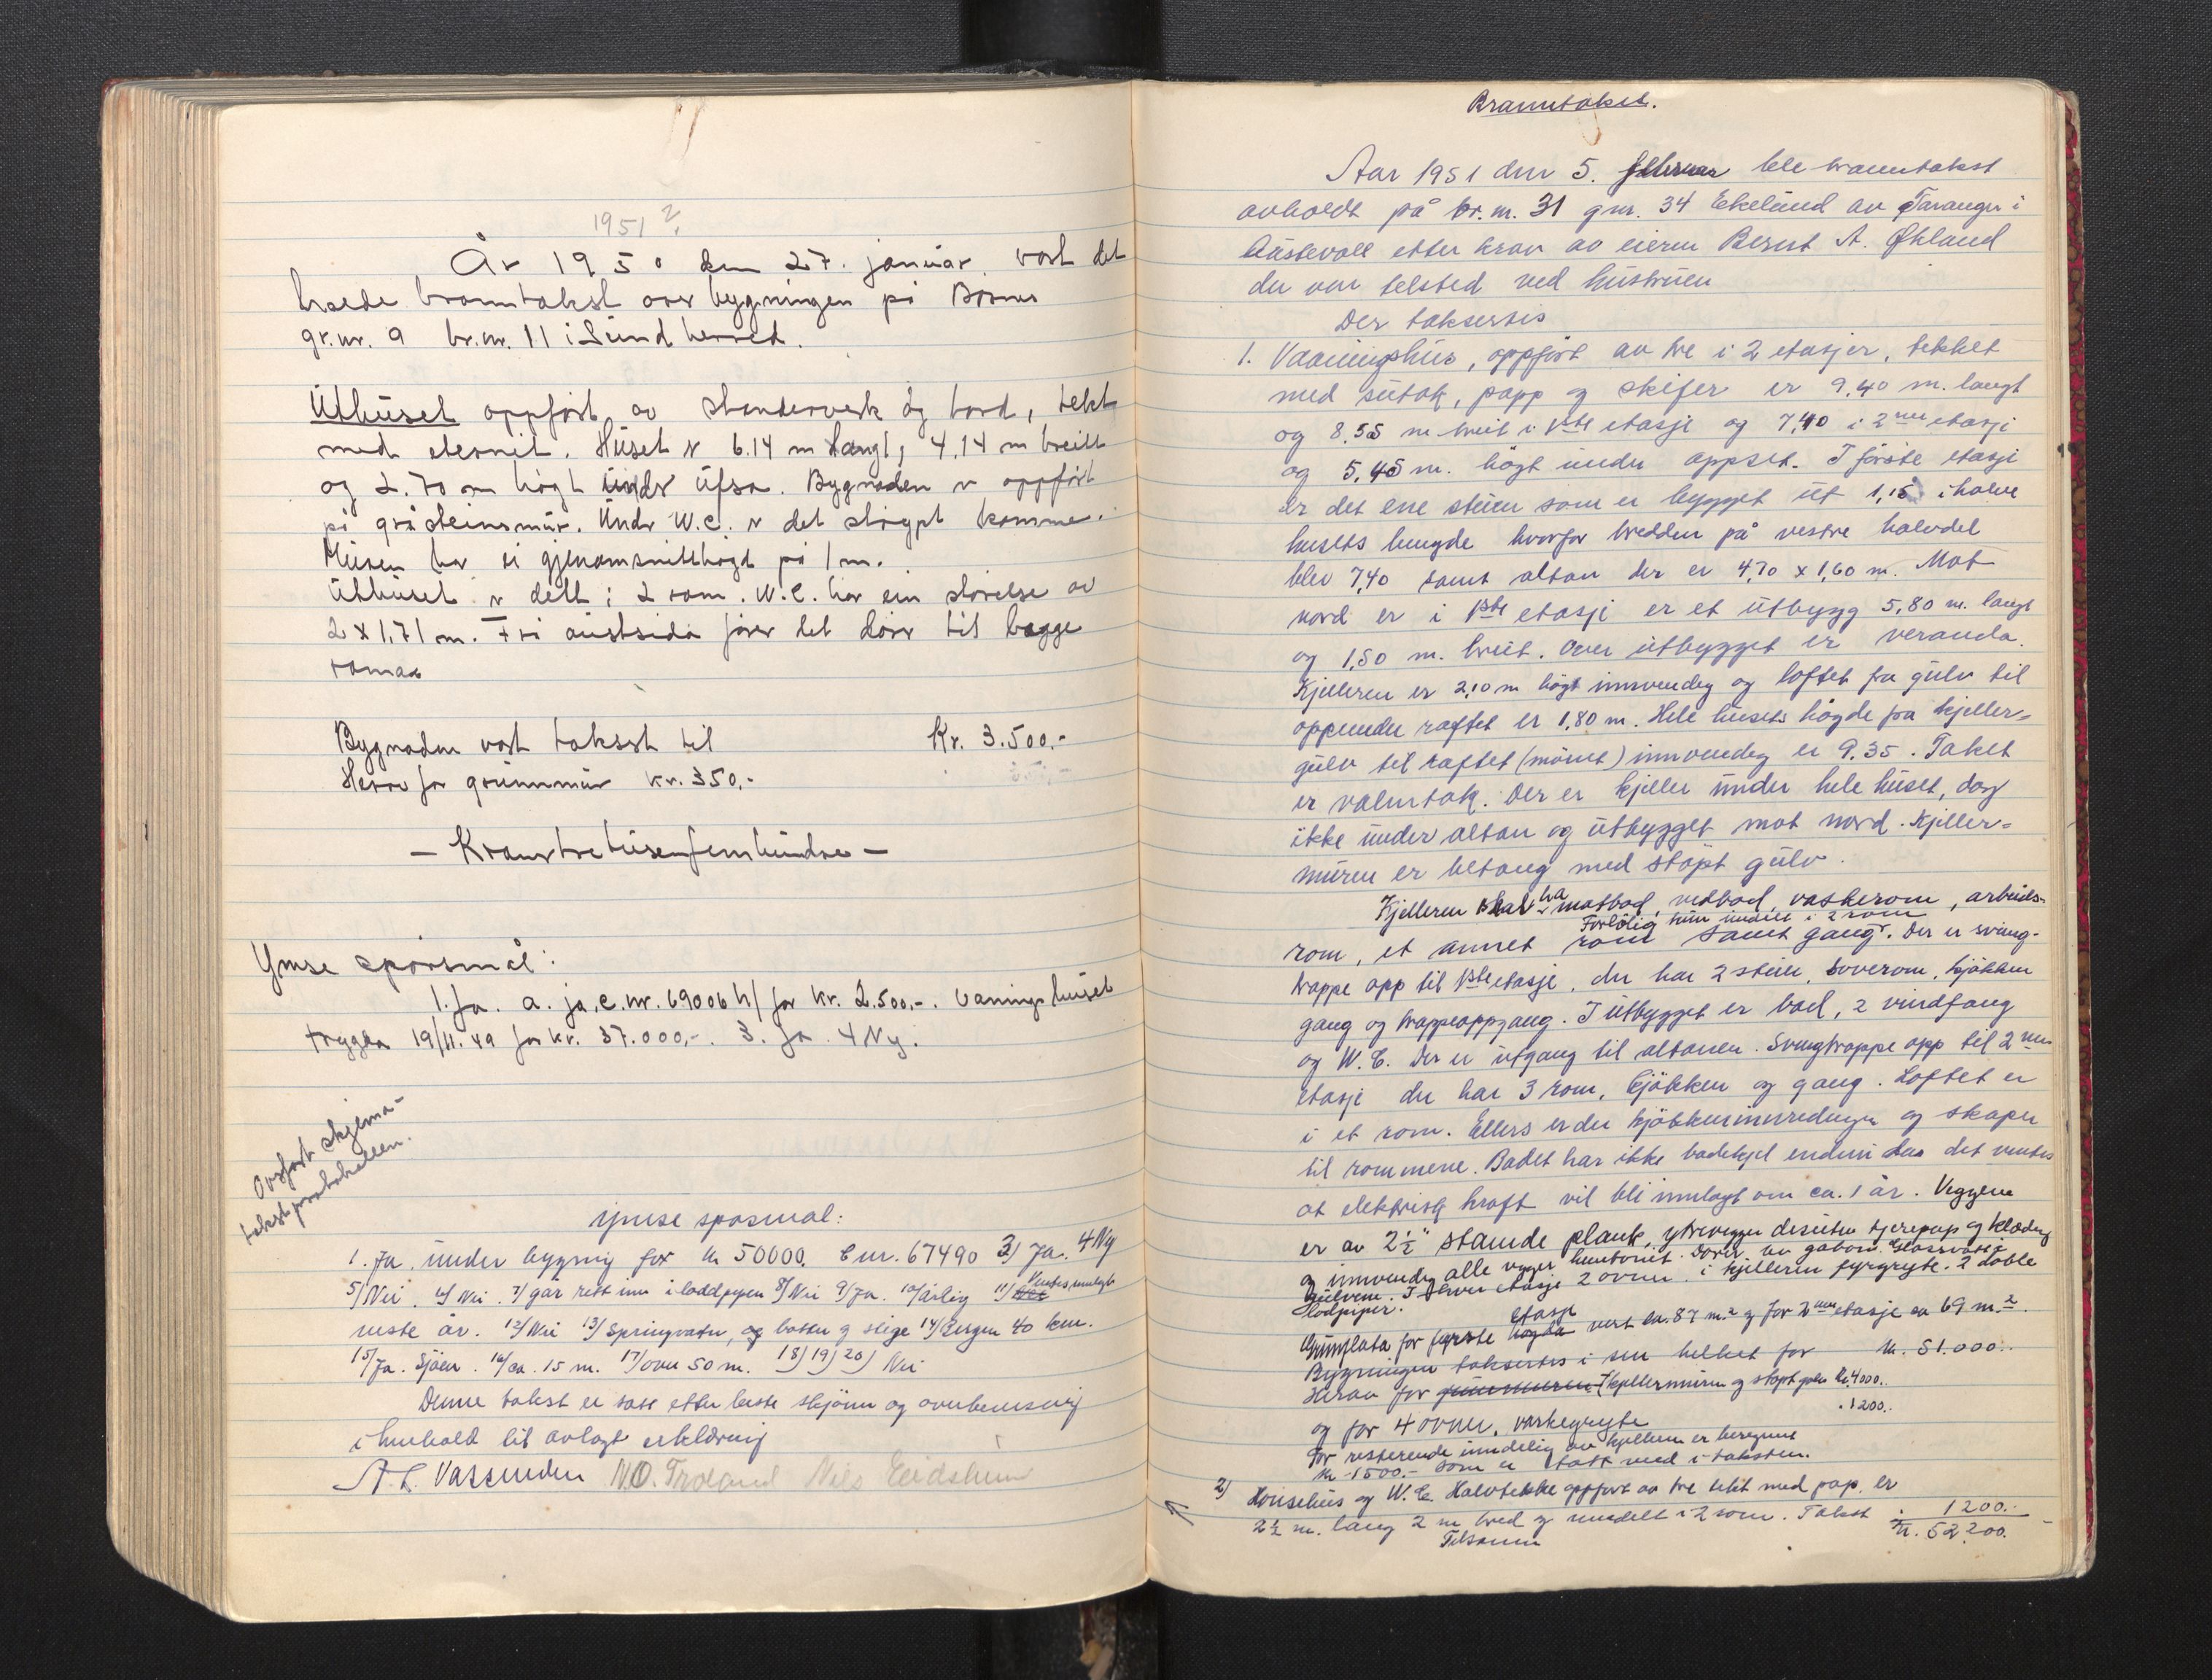 1951?
År 1950 den 27. januar. vart det
halde branntakst over bygningen på Bornes
gr.nr. 9 br.nr. 11 i Sund herred.
Uthuset oppført av stenderverk og bord, tekt
med eternit. Huset er 6.14 m langt, 4.14 m breitt
og 2.70 m høgt under ufsa. Bygnaden er oppført
på gråsteinsmur. Under W.C. er det støypt komme.
Muren har ei gjenomsnittshøgd på 1 m.
Uthuset er delt i 2 rom. W.C. har ein storelse av
2 x 1.71 m. Frå austsida fører det dører til begge
romma
Bygnaden vart taksert til Kr. 3.500,-
Herav for grunnmur kr. 350.-
— Kronertretusenfemhundre —
Ymse spørsmål:
1. Ja. a. ja, c. nr. 69006 h/ for kr. 2.500,-. Våningshuset
trygda 19/11.49 for kr. 37.000,-. 3. Ja. 4 Ny.
Overført skjema-
takstprotokollen.
Ymse sposmal:
1. Ja. under bygnig for kr 50000. C nr. 67490 3/ Ja. 4 Ny
5/ Nei. 6/ Nei. 7/ går rett inn i loddpipen 8/ Nei 9/ Ja. 10/ årlig 11/ Ventes innlagt
neste år. 12/ Nei 13/ Springvatn, og bøtter og stige 14/ Bergen 40 km.
15/ Ja. Sjøen. 16/ ca. 15 m. 17/ over 50 m. 18/ 19/ 20/ Nei
Denne takst er satt etter beste skjønn og overbevisnig
i henhold til avlagt erklæring
A. L. Vassenden N.O. Troland Nils Eidsheim
Branntakst.
Aar 1951 den 5. februar ble branntakst
avholdt på br.nr. 31 gnr. 34 Ekelund av Taranger i
Austevoll etter krav av eieren Bernt A. Økland
der var telsted ved hustruen
Der taksertes
1. Vaaningshus, oppført av tre i 2 etasjer, tekket
med sutak, papp og skifer er 9,40 m. langt
og 8,55 m breit i 1ste etasje og 7,40 i 2nen etasje
og 5,45 m. høgt under oppset. I første etasje
er det ene stuen som er bygget ut 1,15 i halve
husets lengde hvorfor bredden på vestre halvdel
blev 7,40 samt altan der er 4,70 x 1,60 m. Mot
nord er i 1ste etasje er et utbygg 5,80 m. langt
og 1,50 m. breit. Over utbygget er veranda.
Kjelleren er 2,10 m høgt innvendig og loftet fra gulv til
oppunder raftet er 1,80 m. Hele husets høgde fra kjeller-
gulv til raftet (mønet) innvendig er 9,35. Taket
er valmtak. Der er kjeller under hele huset, dog
ikke under altan og utbygget mot nord. Kjeller-
muren er betong med støpt gulv.
Kjelleren skal ha matbod, vedbod, vaskerom, arbeids-
Forløbig kun inndelt i 2 rom
rom, et annet rom samt gang. Der er sving-
trappe opp til 1ste etasje, der har 2 stuer, soverom, kjøkken
gang og trappeoppgang. I utbygget er bad, 2 vindfang
og W.C. Der er utgang til altanen. Svingtrappe opp til 2nen
etasje der har 3 rom, kjøkken og gang. Loftet er
i et rom. Ellers er der kjøkkeninnredninger og skaper
til rommene. Badet har ikke badekjel enduu da det ventes
at elektrisk kraft vil bli innlagt om ca. 1 år. Veggene
er av 2½" staende plank, ytrevegger desuten tjerepap og klædnig
og innvendig alle vegger huntonit. Dører av gabon. Glassvatt i
gulvene. I hver etasje 2 ovner. i kjelleren fyrgryte. 2 doble
lodpiper.
Grunnflata for første etasje høgda vert ca. 87 m.² og for 2nen etasje ca 69 m.².
Bygningen taksertes i sin helhet for kr. 51.000..
Herav for grunnmuren (kjellermuren og støpt golv kr. 4000..
og for 4 ovner, vaskegryte " 1200..
For resterende inndelig av kjelleren er beregnet
kr 1500.- som er tatt med i taksten.
2) Hønsehus og W.C. Halvtekke oppført av tre tekt med pap, er
2½ m. lang 2 m bred og inndelt i 2 rom. Takst " 1200.-
Tilsamen kr. 52.200.